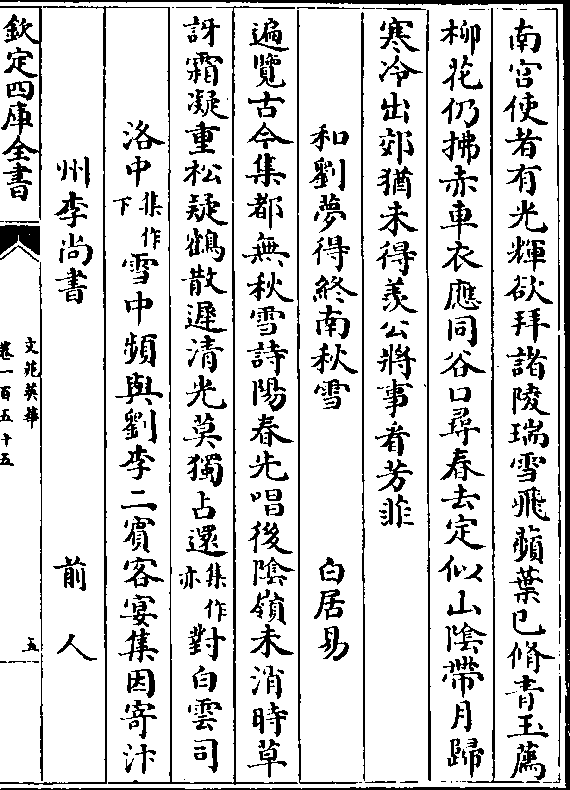 南宫使者有光輝欲拜諸陵瑞雪飛蘋葉已脩青玉薦
柳花仍拂赤車衣應同谷口尋春去定似山陰帶月歸
寒冷出郊猶未得羡公將事看芳菲
和劉夢得終南秋雪 白居易
遍覽古今集都無秋雪詩陽春先唱後陰嶺未消時草
訝霜凝重松疑鶴散遲清光莫獨占還集作亦對白雲司
洛中集作下雪中頻與劉李二賓客宴集因寄汴
州李尚書 前人
欽定四庫全書
文苑英華
卷一百五十五
五